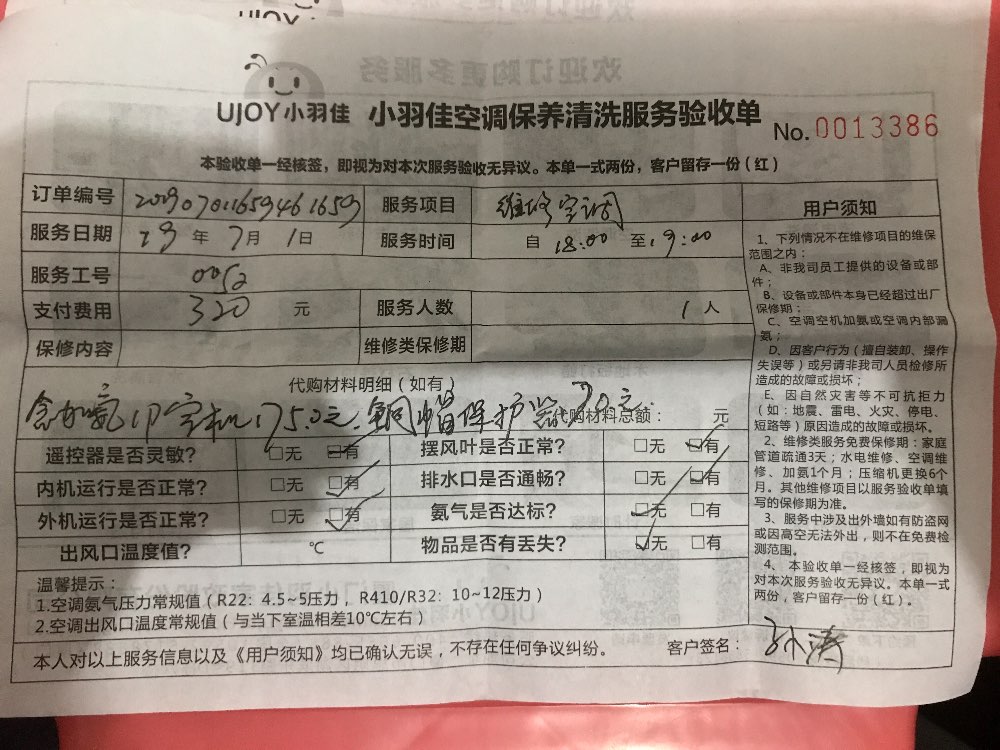 UJOY小羽佳 小羽佳空调保养清洗服务验收单
No.0013386
本验收单一经核签，即视为对本次服务验收无异议。本单一式两份，客户留存一份（红）
订单编号 201907011659461659 服务项目 维修空调
服务日期 19 年 7 月 1 日 服务时间 自 18:00 至 19:00
服务工号 0052
支付费用 320 元 服务人数 1 人
保修内容 维修类保修期
代购材料明细（如有）
加氨 1750元 铜帽保护 70元 代购材料总额： 元
遥控器是否灵敏？ □无 □有 摆风叶是否正常？ □无 □有
内机运行是否正常？ □无 □有 排水口是否通畅？ □无 □有
外机运行是否正常？ □无 □有 氨气是否达标？ □无 □有
出风口温度值？ ℃ 物品是否有丢失？ □无 □有
温馨提示：
1.空调氨气压力常规值（R22：4.5~5压力，R410/R32：10~12压力）
2.空调出风口温度常规值（与当下室温相差10℃左右）
本人对以上服务信息以及《用户须知》均已确认无误，不存在任何争议纠纷。 客户签名： 孙涛
用户须知
1、下列情况不在维修项目的维保
范围之内：
A、非我司员工提供的设备或部
件；
B、设备或部件本身已经超过出厂
保修期；
C、空调空机加氨或空调内部漏
氨；
D、因客户行为（擅自装卸、操作
失误等）或另请非我司人员检修所
造成的故障或损坏；
E、因自然灾害等不可抗拒力
（如：地震、雷电、火灾、停电、
短路等）原因造成的故障或损坏。
2、维修类服务免费保修期：家庭
管道疏通3天；水电维修、空调维
修、加氨1个月；压缩机更换6个
月。其他维修项目以服务验收单填
写的保修期为准。
3、服务中涉及出外墙如有防盗网
或因高空无法外出，则不在免费检
测范围。
4、本验收单一经核签，即视为
对本次服务验收无异议。本单一式
两份，客户留存一份（红）。